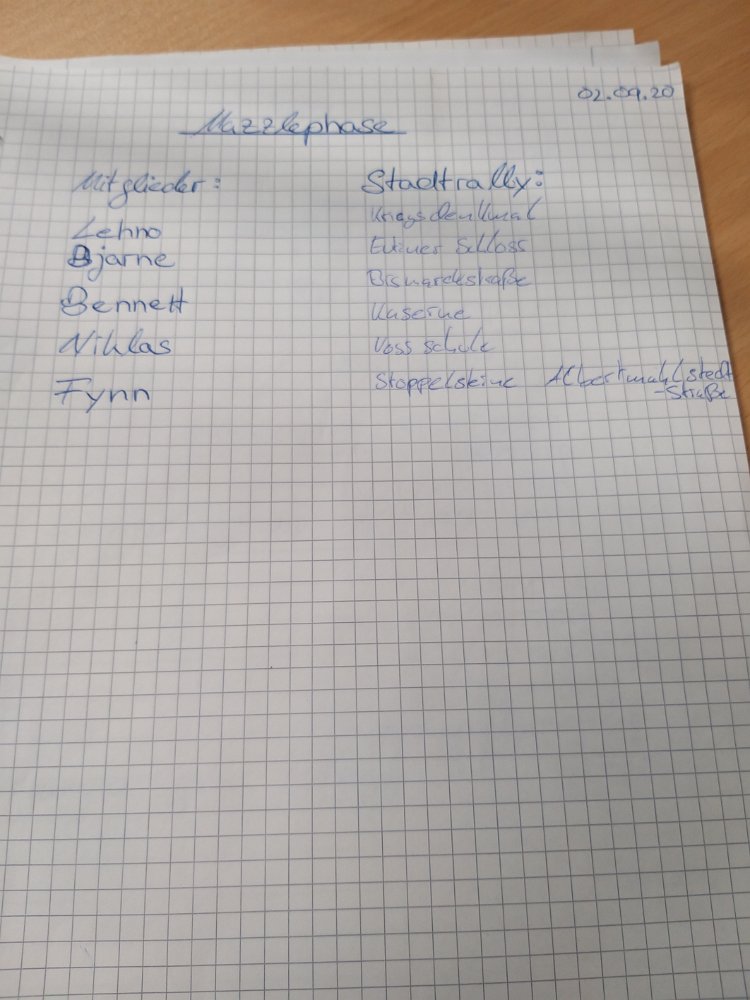 02.09.20
Mazzlephase
Mitglieder:
Lehno
Bjarne
Bennett
Niklas
Fynn
Stadtrally:
Kriegsdenkmal
Eutiner Schloss
Bismarckstraße
Kaserne
Voss schule
Stoppelsteine Albertmahlstedt
-Straße